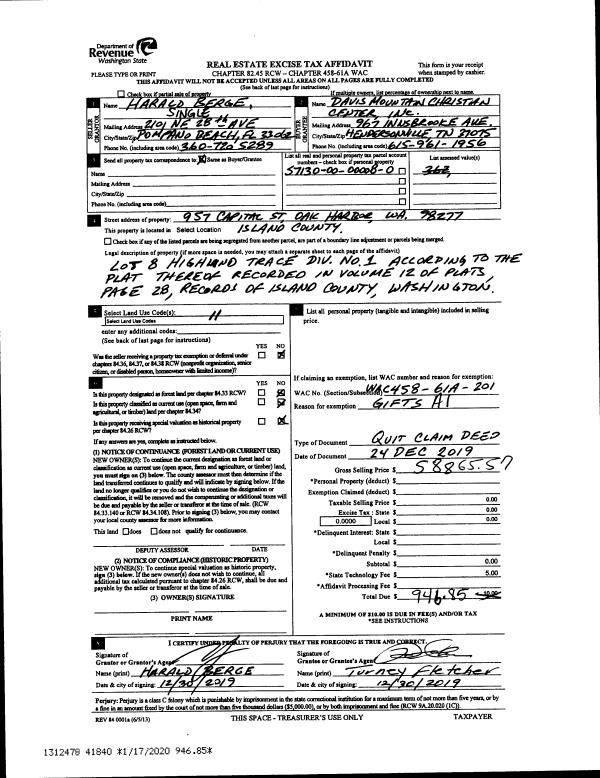 Department of
Revenue
Washington State
PLEASE TYPE OR PRINT
REAL ESTATE EXCISE TAX AFFIDAVIT
CHAPTER 82.45 RCW – CHAPTER 458-61A WAC
This form is your receipt
when stamped by cashier.
THIS AFFIDAVIT WILL NOT BE ACCEPTED UNLESS ALL AREAS ON ALL PAGES ARE FULLY COMPLETED
(See back of last page for instructions)
Check box if partial sale of property
If multiple owners, list percentage of ownership next to name.
SELLER GRANTOR
Name HARALD BERGE,
SINGLE
Mailing Address 2101 NE 28th AVE
City/State/Zip POMPANO BEACH, FL 33062
Phone No. (including area code) 360-720 5289
BUYER GRANTEE
Name DAVIS MOUNTAIN CHRISTIAN
CENTER INC.
Mailing Address 967 INNSBROOKE AVE.
City/State/Zip HENDERSONVILLE TN 37075
Phone No. (including area code) 615-961-1956
Send all property tax correspondence to: Same as Buyer/Grantee
Name
Mailing Address
City/State/Zip
Phone No. (including area code)
List all real and personal property tax parcel account
numbers – check box if personal property
S7130-00-00008-0
List assessed value(s)
Street address of property: 957 CAPITAL ST, OAK HARBOR WA. 98277
This property is located in Select Location ISLAND COUNTY.
Check box if any of the listed parcels are being segregated from another parcel, are part of a boundary line adjustment or parcels being merged.
Legal description of property (if more space is needed, you may attach a separate sheet to each page of the affidavit)
LOT 8 HIGHLAND TRACE DIV. NO. 1 ACCORDING TO THE
PLAT THEREOF RECORDED IN VOLUME 12 OF PLATS,
PAGE 28, RECORDS OF ISLAND COUNTY, WASHINGTON.
Select Land Use Code(s): 11
Select Land Use Codes
enter any additional codes:
(See back of last page for instructions)
YES NO
Was the seller receiving a property tax exemption or deferral under
chapters 84.36, 84.37, or 84.38 RCW (nonprofit organization, senior
citizen, or disabled person, homeowner with limited income)?
YES NO
Is this property designated as forest land per chapter 84.33 RCW?
Is this property classified as current use (open space, farm and
agricultural, or timber) land per chapter 84.34?
Is this property receiving special valuation as historical property
per chapter 84.26 RCW?
If any answers are yes, complete as instructed below.
(1) NOTICE OF CONTINUANCE (FOREST LAND OR CURRENT USE)
NEW OWNER(S): To continue the current designation as forest land or
classification as current use (open space, farm and agriculture, or timber) land,
you must sign on (3) below. The county assessor must then determine if the
land transferred continues to qualify and will indicate by signing below. If the
land no longer qualifies or you do not wish to continue the designation or
classification, it will be removed and the compensating or additional taxes will
be due and payable by the seller or transferor at the time of sale. (RCW
84.33.140 or RCW 84.34.108). Prior to signing (3) below, you may contact
your local county assessor for more information.
This land does does not qualify for continuance.
DEPUTY ASSESSOR DATE
(2) NOTICE OF COMPLIANCE (HISTORIC PROPERTY)
NEW OWNER(S): To continue special valuation as historic property,
sign (3) below. If the new owner(s) does not wish to continue, all
additional tax calculated pursuant to chapter 84.26 RCW, shall be due and
payable by the seller or transferor at the time of sale.
(3) OWNER(S) SIGNATURE
PRINT NAME
List all personal property (tangible and intangible) included in selling
price.
If claiming an exemption, list WAC number and reason for exemption:
WAC No. (Section/Subsection) WAC458-61A-201
Reason for exemption GIFTS A1
Type of Document QUIT CLAIM DEED
Date of Document 24 DEC 2019
Gross Selling Price $ 58865.57
*Personal Property (deduct) $
Exemption Claimed (deduct) $
Taxable Selling Price $ 0.00
Excise Tax : State $ 0.00
0.0000 Local $ 0.00
*Delinquent Interest: State $
Local $
*Delinquent Penalty $
Subtotal $ 0.00
*State Technology Fee $ 5.00
*Affidavit Processing Fee $
Total Due $ 946.85 10.00
A MINIMUM OF $10.00 IS DUE IN FEE(S) AND/OR TAX
*SEE INSTRUCTIONS
I CERTIFY UNDER PENALTY OF PERJURY THAT THE FOREGOING IS TRUE AND CORRECT.
Signature of
Grantor or Grantor's Agent
Name (print) HARALD BERGE
Date & city of signing: 12/30/2019
Signature of
Grantee or Grantee's Agent
Name (print) Turney Fletcher
Date & city of signing: 12/30/2019
Perjury: Perjury is a class C felony which is punishable by imprisonment in the state correctional institution for a maximum term of not more than five years, or by
a fine in an amount fixed by the court of not more than five thousand dollars ($5,000.00), or by both imprisonment and fine (RCW 9A.20.020 (1C)).
REV 84 0001a (6/5/13) THIS SPACE - TREASURER'S USE ONLY TAXPAYER
1312478 41840 *1/17/2020 946.85*